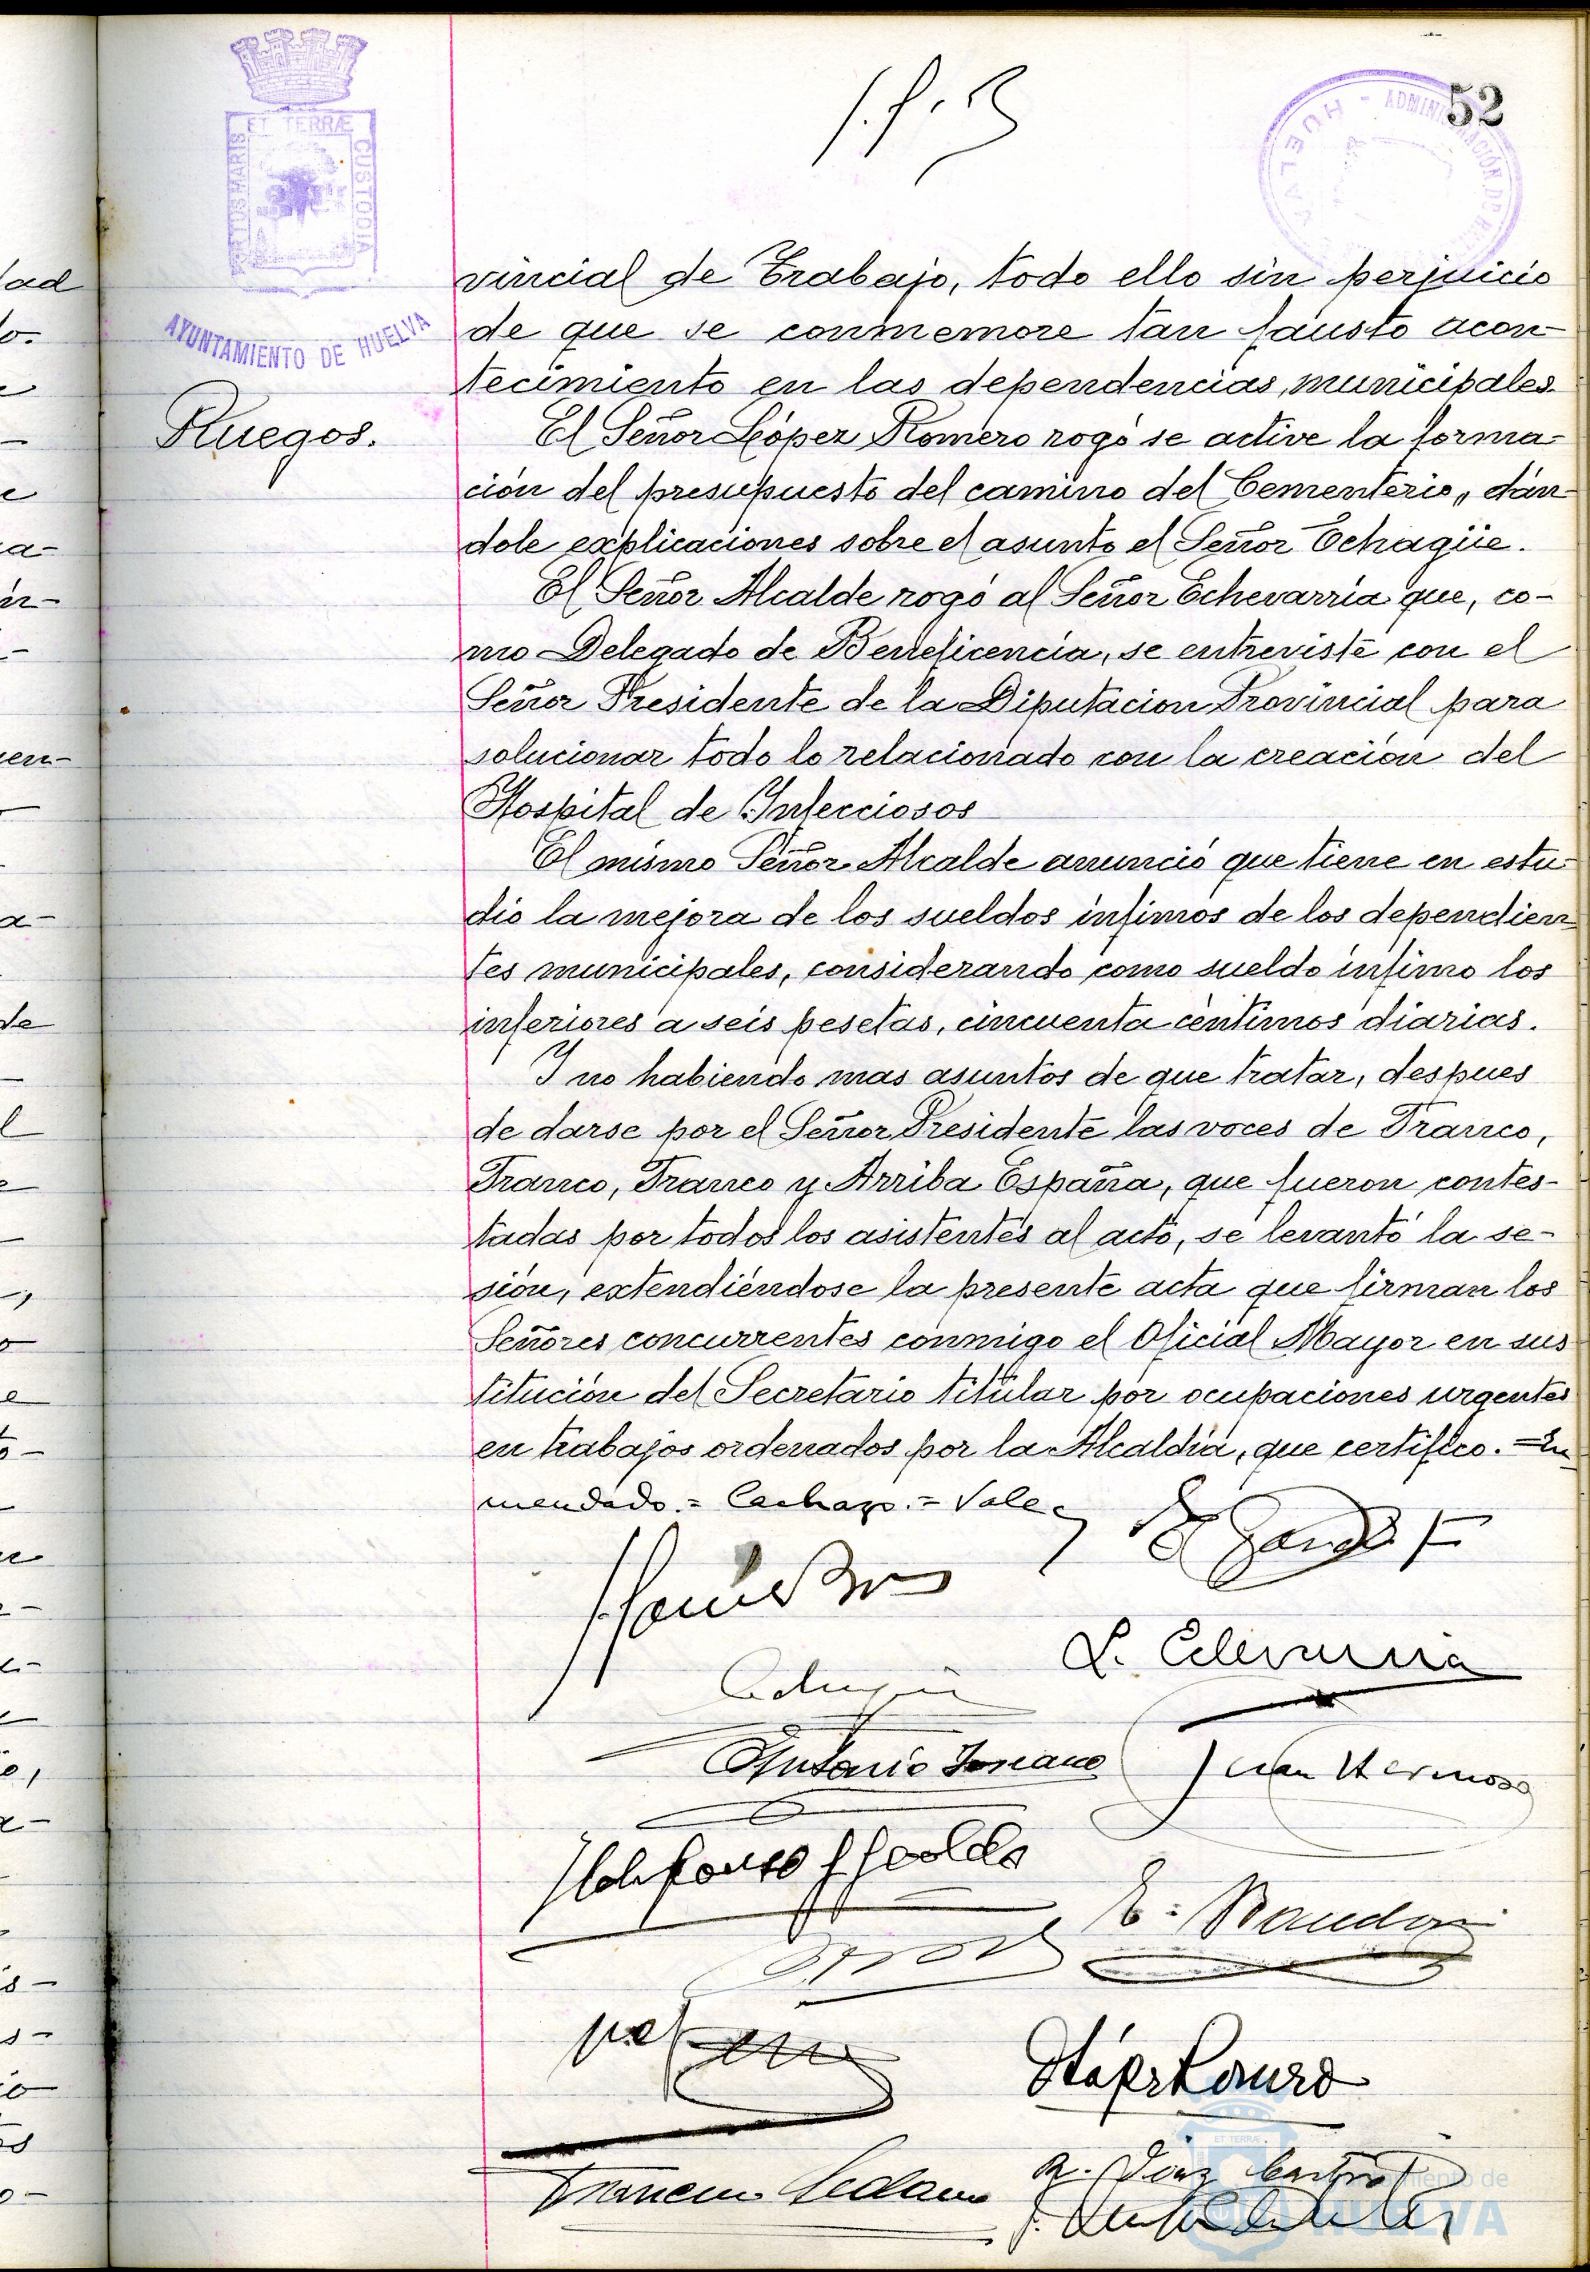 52
PORTUS MARIS ET TERRÆ CUSTODIA
AYUNTAMIENTO DE HUELVA
HUELVA
vincial de Trabajo, todo ello sin perjuicio
de que se conmemore tan fausto acon-
tecimiento en las dependencias municipales.
Ruegos.
El Señor López Romero rogó se active la forma-
ción del presupuesto del camino del Cementerio, dán-
dole explicaciones sobre el asunto el Señor Echagüe.
El Señor Alcalde rogó al Señor Echevarría que, co-
mo Delegado de Beneficencia, se entreviste con el
Señor Presidente de la Diputacion Provincial para
solucionar todo lo relacionado con la creación del
Hospital de Infecciosos
El mismo Señor Alcalde anunció que tiene en estu-
dio la mejora de los sueldos ínfimos de los dependien-
tes municipales, considerando como sueldo ínfimo los
inferiores a seis pesetas, cincuenta céntimos diarias.
Y no habiendo mas asuntos de que tratar, despues
de darse por el Señor Presidente las voces de Franco,
Franco, Franco y Arriba España, que fueron contes-
tadas por todos los asistentes al acto, se levantó la se-
sión, extendiéndose la presente acta que firman los
Señores concurrentes conmigo el Oficial Mayor en sus
titución del Secretario titular por ocupaciones urgentes
en trabajos ordenados por la Alcaldía, que certifico. = En
mendado. = = Vale
L. Echevarria
Antonio Soriano
Juan Hermoso
Ildefonso
López Romero
Francisco Sedano
R. Diaz
Ayuntamiento de
HUELVA